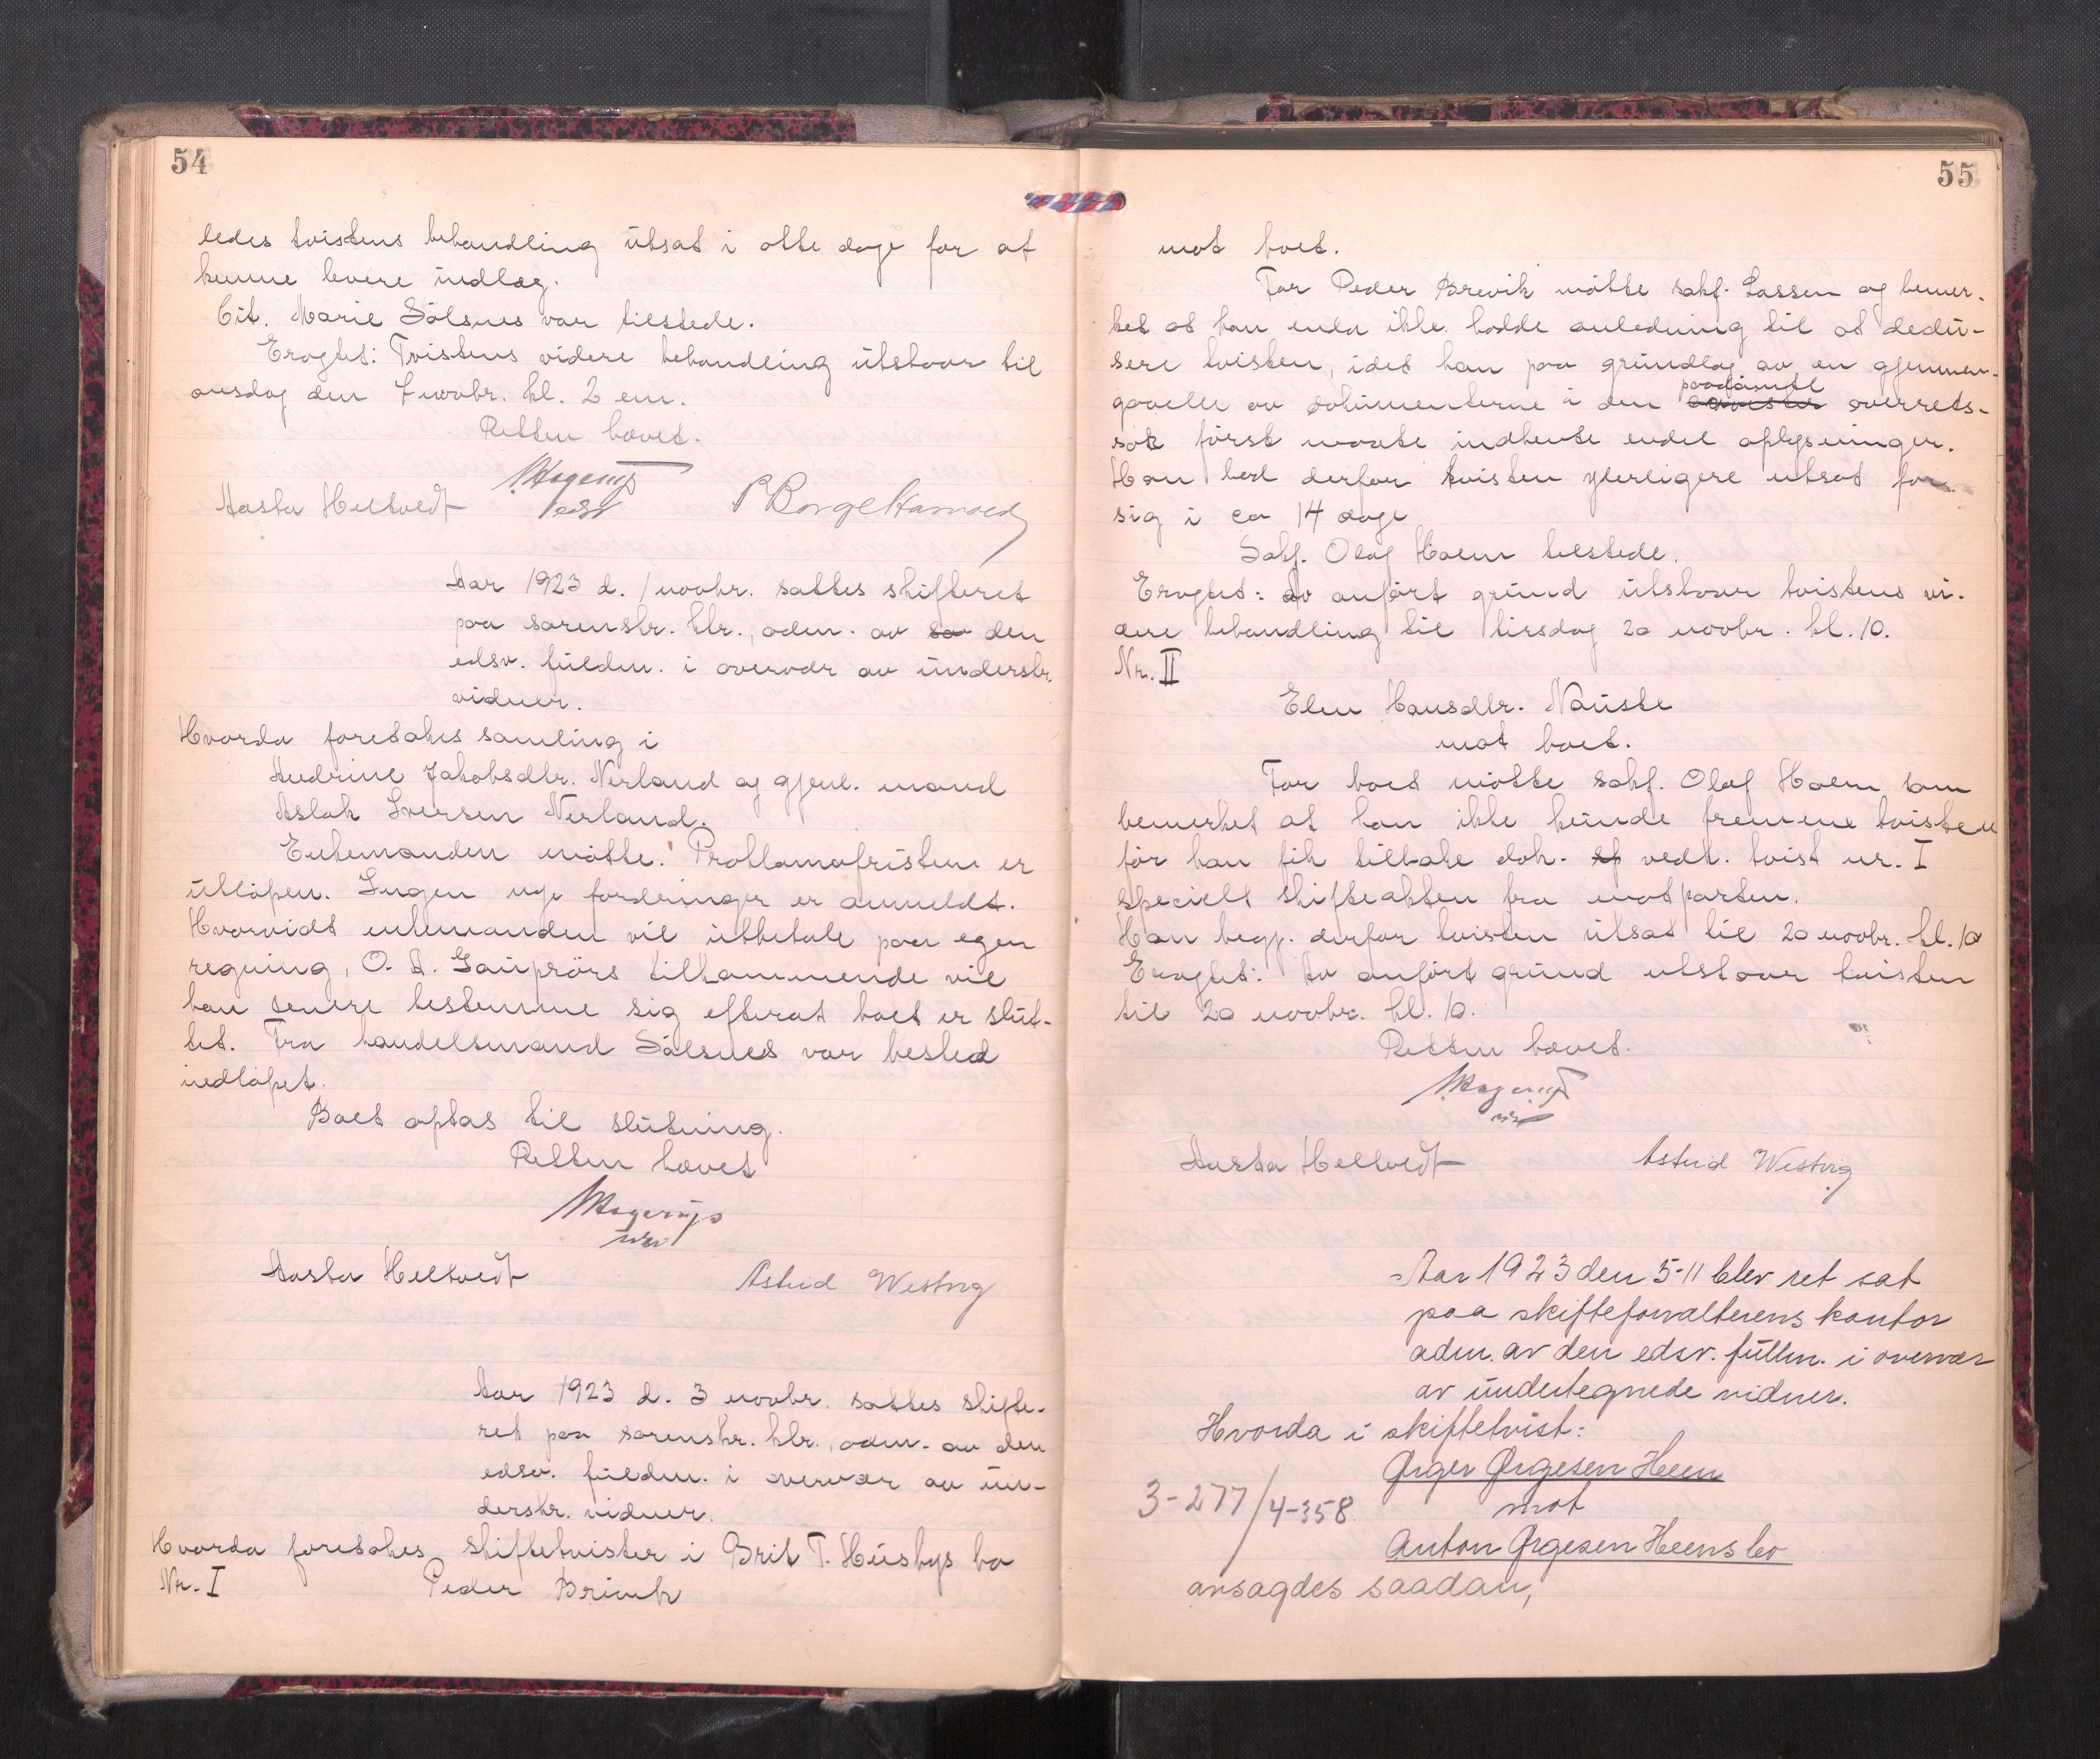 54
ledes tvistens behandling utsat i otte dage for at
kunne levere indlæg.
Cit. Marie Sølsnes var tilstede.
Eragtet: Tvistens videre behandling utstaar til
onsdag den 7 novbr. kl. 2 em.
Retten hævet.
Hagerup
edsv
Aasta Heltvedt
P Borge Hamoed
Aar 1923 d. 1 novbr. sattes skifteret
paa sorenskr. ktr., adm. av so den
edsv. fuldm. i overvær av underskr.
vidner.
Hvorda foretokes samling i
Andrine Jakobsdtr. Nerland og gjenl. mand
Aslak Iversen Nerland.
Enkemanden møtte. Proklamafristen er
utløpen. Ingen nye fordringer er anmeldt.
Hvorvidt enkemanden vil utbetale paa egen
regning, O. A. Gauprørs tilkommende vil
han senere bestemme sig efterat boet er slut-
tet. Fra handelsmand Sølsnes var besked
indløpet.
Boet optas til slutning.
Retten hævet
Hagerup
Aasta Heltvedt
Astrid Westvig
Aar 1923 d. 3 novbr. sattes skifte-
ret paa sorenskr. ktr., adm. av den
edsv. fuldm. i overvær av un-
derskr. vidner.
Hvorda foretokes skiftetvister i Brit T. Husbys bo
Nr. I Peder Brevik
55
mot boet.
For Peder Brevik møtte sakf. Lassen og bemer-
ket at han enda ikke hadde anledning til at dedu-
sere tvisten, idet han paa grundlag av en gjennem-
paadømte
gaaelse av dokumenterne i den overrets-
sak først maatte indhente endel oplysninger.
Han bad derfor tvisten yterligere utsat for
sig i ca 14 dage
Sakf. Olaf Hoem tilstede.
Eragtet: Av anført grund utstaar tvistens vi-
dere behandling til tirsdag 20 novbr. kl. 10.
Nr. II
Elen Hansdtr. Nauste
mot boet.
For boet møtte sakf. Olaf Hoem som
bemerket at han ikke kunde fremme tvisten
før han fik tilbake dok. vedk. tvist nr. I
specielt skifteakten fra motparten.
Han begj. derfor tvisten utsat til 20 novbr. kl. 10
Eragtet: Av anført grund utstaar tvisten
til 20 novbr. kl. 10.
Retten hævet.
Hagerup
Aasta Heltvedt
Astrid Westvig
Aar 1923 den 5-11 blev ret sat
paa skifteforvalterens kontor
adm. av den edsv. fullm. i overvær
av undertegnede vidner.
Hvorda i skiftetvist:
Ørger Ørgesen Heen
3-277/4-358
mot
Anton Ørgesen Heens bo
avsagdes saadan,